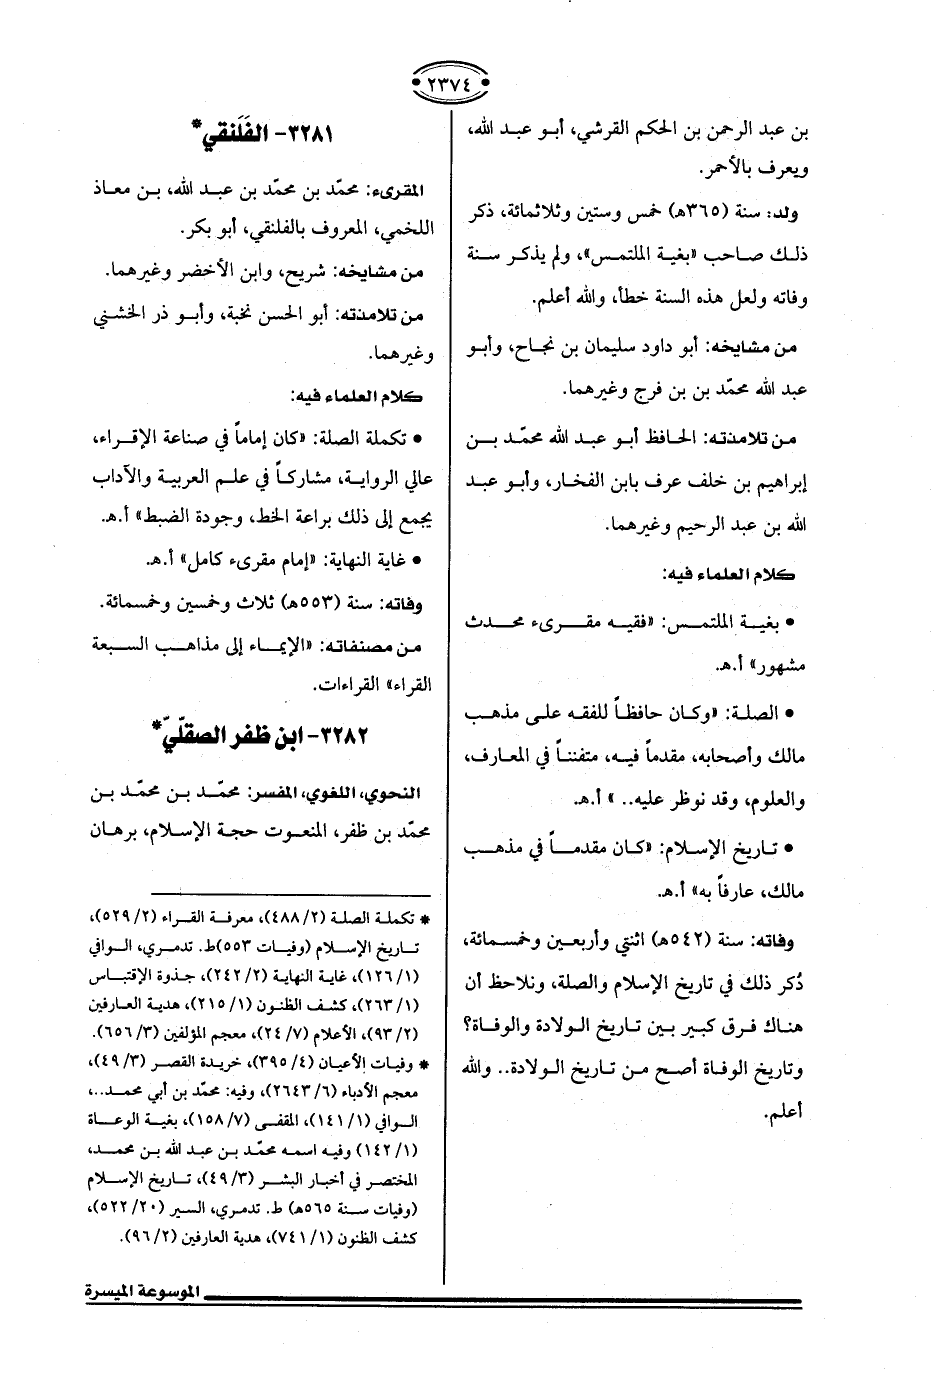 ٢٣٧٤
بن عبد الرحمن بن الحكم القرشي، أبو عبد الله،
ويعرف بالأحمر.
ولد: سنة (٣٦٥هـ) خمس وستين وثلاثمائة، ذكر
ذلك صاحب «بغية الملتمس»، ولم يذكر سنة
وفاته ولعل هذه السنة خطأ، والله أعلم.
من مشايخه: أبو داود سليمان بن نجاح، وأبو
عبد الله محمّد بن بن فرج وغيرهما.
من تلامذته: الحافظ أبو عبد الله محمّد بن
إبراهيم بن خلف عرف بابن الفخار، وأبو عبد
الله بن عبد الرحيم وغيرهما.
كلام العلماء فيه:
• بغية الملتمس: «فقيه مقرىء محدث
مشهور» أ.هـ.
• الصلة: «وكان حافظاً للفقه على مذهب
مالك وأصحابه، مقدماً فيه، متفنناً في المعارف،
والعلوم، وقد نوظر عليه.. » أ.هـ.
• تاريخ الإسلام: «كان مقدماً في مذهب
مالك، عارفاً به» أ.هـ.
وفاته: سنة (٥٤٢هـ) اثنتي وأربعين وخمسمائة،
ذُكر ذلك في تاريخ الإسلام والصلة، ونلاحظ أن
هناك فرق كبير بين تاريخ الولادة والوفاة؟
وتاريخ الوفاة أصح من تاريخ الولادة.. والله
أعلم.
٣٢٨١- الفَلَنقي*
المقرىء: محمّد بن محمّد بن عبد الله، بن معاذ
اللخمي، المعروف بالفلنقي، أبو بكر.
من مشايخه: شريح، وابن الأخضر وغيرهما.
من تلامذته: أبو الحسن نخبة، وأبو ذر الخشني
وغيرهما.
كلام العلماء فيه:
• تكملة الصلة: «كان إماماً في صناعة الإقراء،
عالي الرواية، مشاركاً في علم العربية والآداب
يجمع إلى ذلك براعة الخط، وجودة الضبط» أ.هـ.
• غاية النهاية: «إمام مقرىء كامل» أ.هـ.
وفاته: سنة (٥٥٣هـ) ثلاث وخمسين وخمسمائة.
من مصنفاته: «الإيماء إلى مذاهب السبعة
القراء» القراءات.
٣٢٨٢- ابن ظفر الصقلّيّ*
النحوي، اللغوي، المفسر: محمّد بن محمّد بن
محمّد بن ظفر، المنعوت حجة الإسلام، برهان
* تكملة الصلة (٢/ ٤٨٨)، معرفة القراء (٢/ ٥٢٩)،
تاريخ الإسلام (وفيات ٥٥٣)ط. تدمري، الوافي
(١/ ١٢٦)، غاية النهاية (٢/ ٢٤٢)، جذوة الإقتباس
(١/ ٢٦٣)، كشف الظنون (١/ ٢١٥)، هدية العارفين
(٢/ ٩٣)، الأعلام (٧/ ٢٤)، معجم المؤلفين (٣/ ٦٥٦).
* وفيات الأعيان (٤/ ٣٩٥)، خريدة القصر (٣/ ٤٩)،
معجم الأدباء (٦/ ٢٦٤٣)، وفيه: محمّد بن أبي محمد..،
الوافي (١/ ١٤١)، المقفى (٧/ ١٥٨)، بغية الوعاة
(١/ ١٤٢) وفيه اسمه محمّد بن عبد الله بن محمد،
المختصر في أخبار البشر (٣/ ٤٩)، تاريخ الإسلام
(وفيات سنة ٥٦٥هـ) ط. تدمري، السير (٢٠/ ٥٢٢)،
كشف الظنون (١/ ٧٤١)، هدية العارفين (٢/ ٩٦).
الموسوعة الميسرة